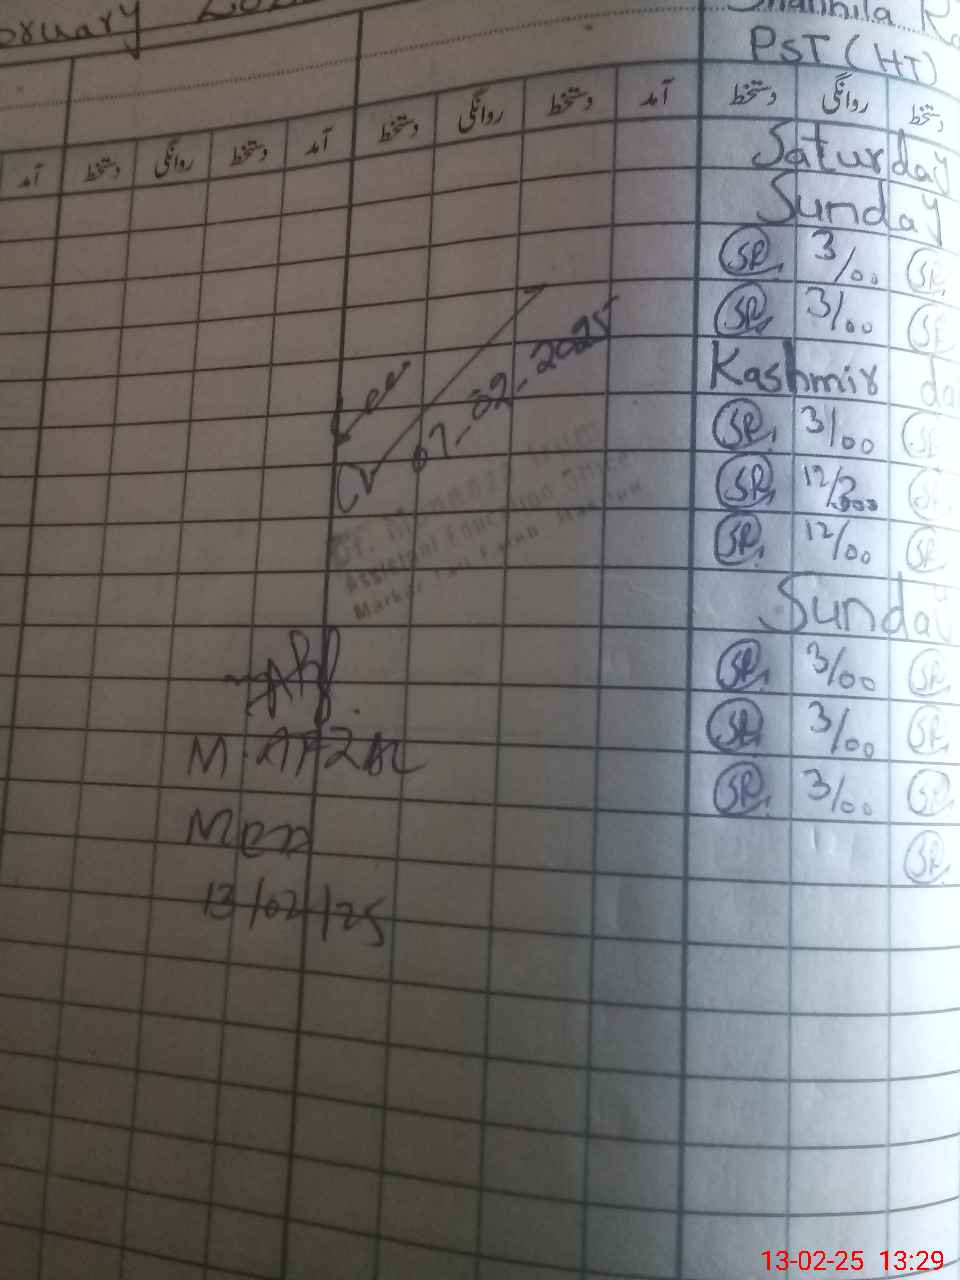 PST (HT)
آمد دستخط روانگی دستخط آمد دستخط روانگی دستخط آمد دستخط روانگی دستخط
Saturday
Sunday
SR 3/00 SR
SR 3/00 SR
Kashmir da
SR 3/00 SR
SR 12/ SR
SR 12/00 SR
Sunday
SR 3/00 SR
SR 3/00 SR
SR 3/00 SR
SR
07-02-2025
Assistant Education Officer
Markaz
M. AFZAL
13/02/25
13-02-25 13:29